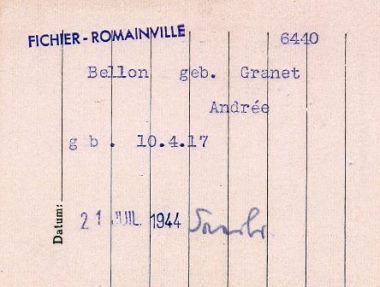 FICHIER - ROMAINVILLE
6440
Bellon geb. Granet
Andrée
g b . 10.4.17
Datum:
21 JUIL 1944